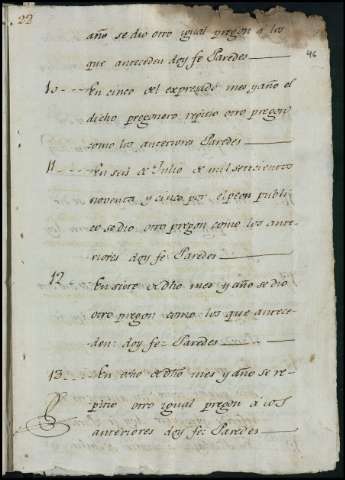 22
año se dio otro igual pregon a los
que anteceden doy fe Paredes
46
10 En cinco del expresado mes y año el
dicho pregonero repitio otro pregon
como los anteriores Paredes
11 En seis de Julio de mil setecientos
noventa y cinco por el peon publi
co se dio otro pregon como los ante
riores doy fe Paredes
12 En siete de dho mes y año se dio
otro pregon como los que antece
den: doy fe: Paredes
13 En ocho de dho mes y año se re
pitio otro igual pregon a los
anteriores doy fe: Paredes